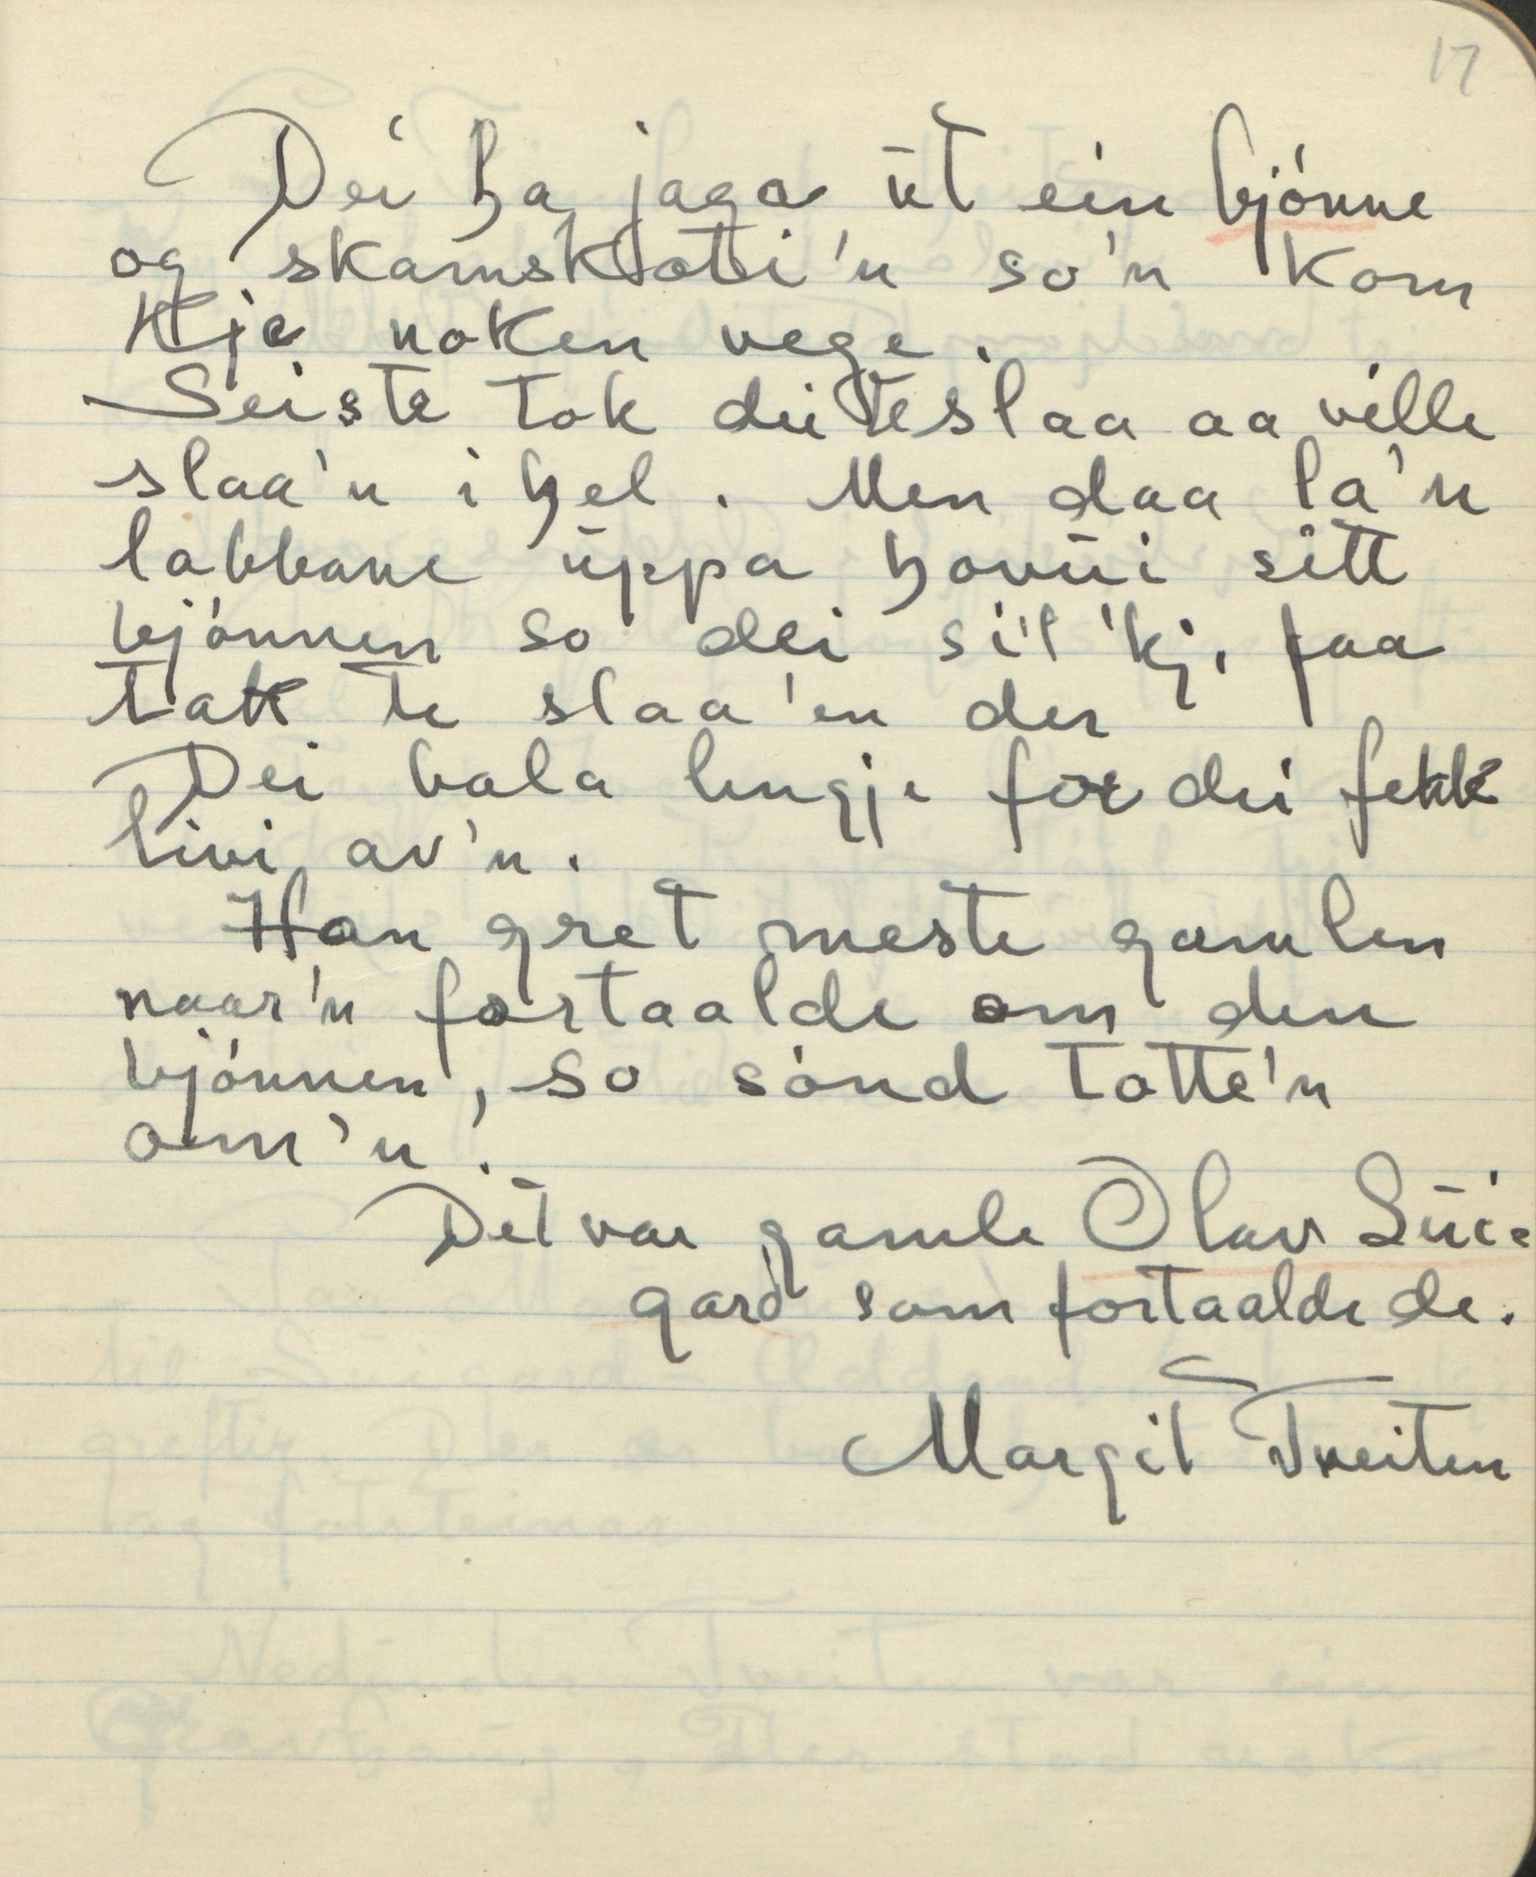 17
Dei ha jaga ut ein bjønne
og skamskoti'n so'n kom
kje noken vege.
Seiste tok dei te slaa aa ville
slaa'n i hel. Men daa la'n
labbane uppa hovui sitt
bjønnen so dei si'l 'kj, faa
tak te slaa'en der
Dei bala lengje for dei fekk
livi av'n.
Han gret meste gamlen
naar'n fortaalde om den
bjønnen, so sònd totte'n
om'n!
Det var gamle Olav Lui-
gard som fortaalde de.
Margit Tveiten